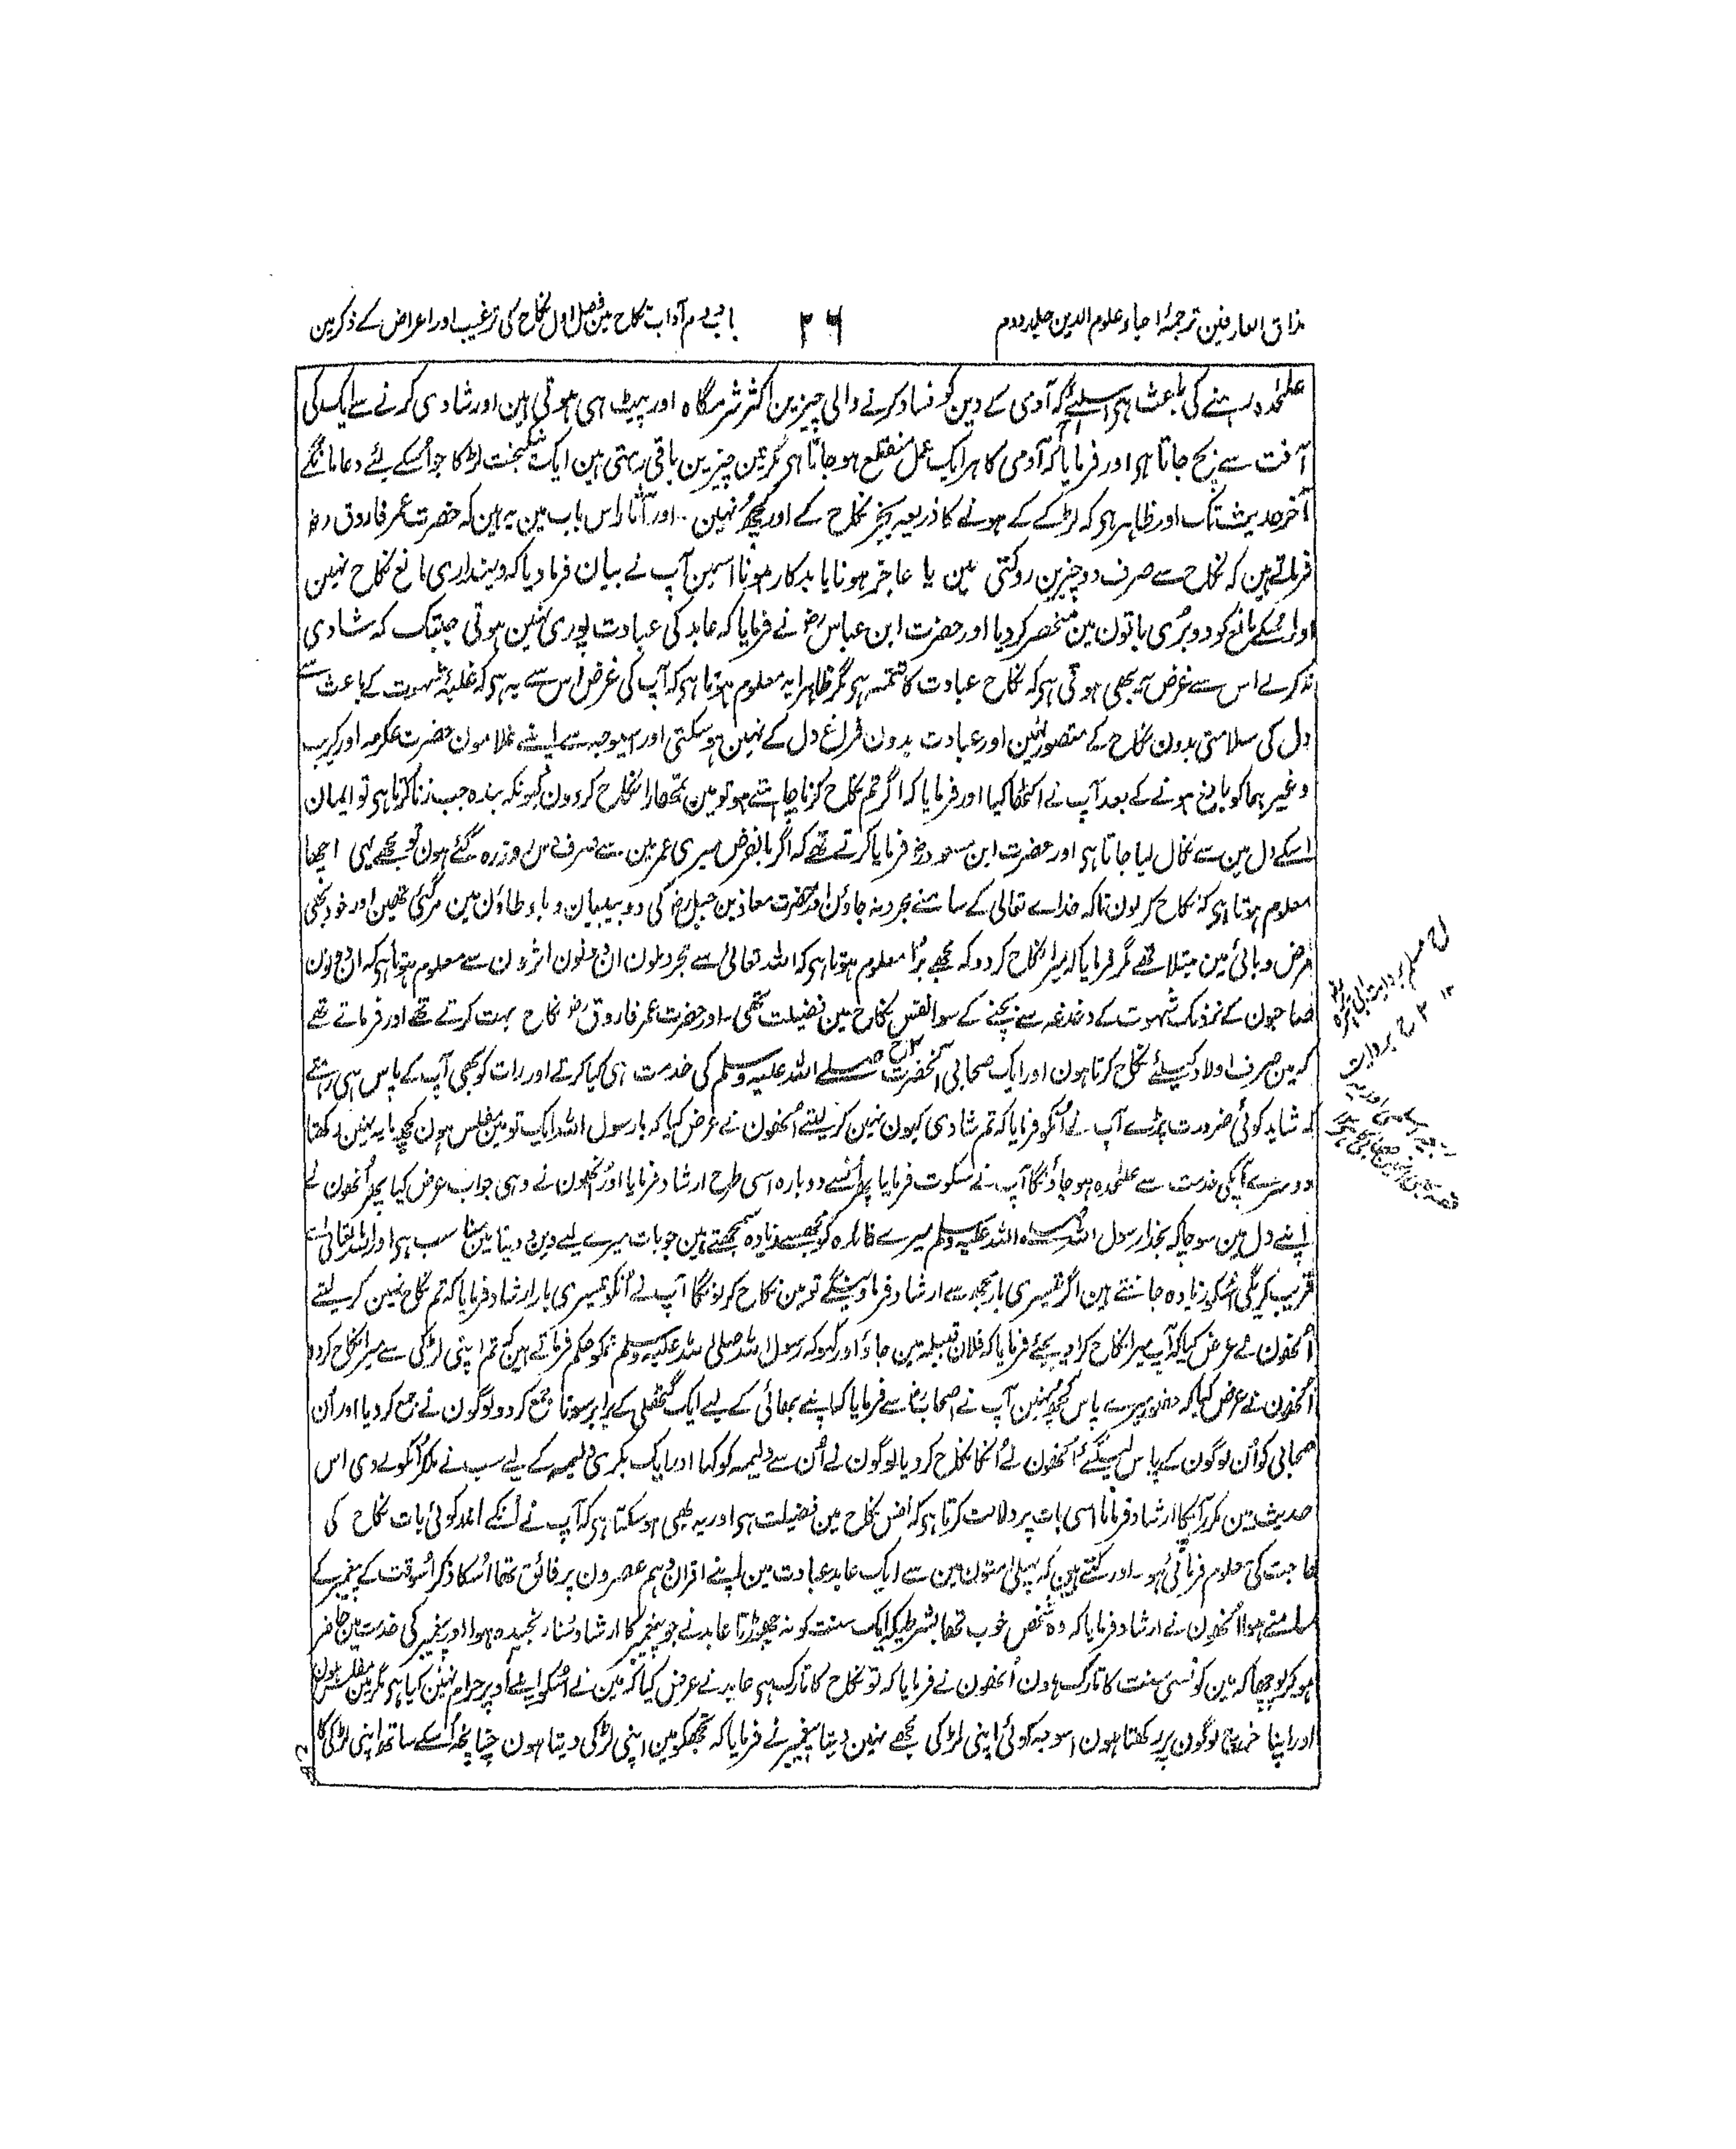 مذاق العارفین ترجمۂ احیاء علوم الدین جلد دوم
۲۶
باب دوم آداب نکاح مین فصل اول نکاح کی ترغیب اور اعراض کے ذکر مین
علٰحدہ رہنے کی باعث ہی اسلیے کہ آدمی کے دین کو فساد کرنے والی چیزین اکثر شرمگاہ اور پیٹ ہی ہوتی ہین اور شادی کرنے سے ایک کی
آفت سے بچ جاتا ہی اور فرمایا کہ آدمی کا ہر ایک عمل منقطع ہو جاتا ہی مگر تین چیزین باقی رہتی ہین ایک نیکبخت لڑکا جو اُسکے لئے دعا مانگے
آخر حدیث تک اور ظاہر ہی کہ لڑکے کے ہونے کا ذریعہ بجز نکاح کے اور کچھ نہین۔ اور آثار اس باب مین یہ ہین کہ حضرت عمر فاروق رض
فرماتے ہین کہ نکاح سے صرف دو چیزین روکتی ہین یا عاجز ہونا یا بدکار ہونا اسمین آپ نے بیان فرما دیا کہ دینداری مانع نکاح نہین
اور اُسکے مانع کو دو بُری باتون مین منحصر کر دیا اور حضرت ابن عباس رض نے فرمایا کہ عابد کی عبادت پوری نہین ہوتی جبتک کہ شادی
نکرلے اس سے غرض یہ بھی ہوتی ہی کہ نکاح عبادت کا تتمہ ہی مگر ظاہرا یہ معلوم ہوتا ہی کہ آپ کی غرض اس سے یہ ہی کہ غلبۂ شہوت کے باعث سے
دل کی سلامتی بدون نکاح کے متصور نہین اور عبادت بدون فراغ دل کے نہین ہو سکتی اور اسیوجہ سے اپنے غلامون حضرت عکرمہ اور کریب
وغیرہما کو بالغ ہونے کے بعد آپ نے اکٹھا کیا اور فرمایا کہ اگر تم نکاح کرنا چاہتے ہو تو مین تمھارا نکاح کر دون کیونکہ بندہ جب زنا کرتا ہی تو ایمان
اسکے دل مین سے نکال لیا جاتا ہی اور حضرت ابن مسعود رض فرمایا کرتے تھے کہ اگر بالفرض میری عمر مین سے صرف دس روز رہ گئے ہون تو مجھے یہی اچھا
معلوم ہوتا ہی کہ نکاح کر لون تاکہ خداے تعالی کے سامنے مجرد نہ جاؤن اور حضرت معاذ بن جبل رض کی دو بیبیان وباء طاؤن مین مرگئی تھین اور خود بھی
مرض وبائی مین مبتلا تھے مگر فرمایا کہ میرا نکاح کر دو کہ مجھے بُرا معلوم ہوتا ہی کہ اللہ تعالی سے مجرد ملون ان دونون اثرون سے معلوم ہوتا ہی کہ ان دونون
صاحبون کے نزدیک شہوت کے دغدغہ سے بچنے کے سوا نفس نکاح مین فضیلت تھی۔ اور حضرت عمر فاروق رض نکاح بہت کرتے تھے اور فرماتے تھے
کہ مین صرف اولاد کیلئے نکاح کرتا ہون اور ایک صحابی آنحضرت صلے اللہ علیہ وسلم کی خدمت ہی کیا کرتے اور رات کو بھی آپ کے پاس ہی رہتے
کہ شاید کوئی ضرورت پڑے آپ نے اُنکو فرمایا کہ تم شادی کیون نہین کر لیتے اُنھون نے عرض کیا کہ یا رسول اللہ ایک تو مین مفلس ہون کچھ پایہ نہین رکھتا
دوسرے آپکی خدمت سے علٰحدہ ہو جاؤنگا آپ نے سکوت فرمایا پھر اُنسے دوبارہ اسی طرح ارشاد فرمایا اور اُنھون نے وہی جواب عرض کیا پھر اُنھون نے
اپنے دل مین سوچا کہ بخدا رسول اللہ صلے اللہ علیہ وسلم میرے فائدہ کو مجھسے زیادہ سمجھتے ہین جو بات میرے لیے دین و دنیا مین مناسب ہی اور اللہ تعالیٰ سے
قریب کریگی اُسکو زیادہ جانتے ہین اگر تیسری بار مجھ سے ارشاد فرماوینگے تو مین نکاح کر لونگا آپ نے اُنکو تیسری بار ارشاد فرمایا کہ تم نکاح نہین کر لیتے
اُنھون نے عرض کیا کہ آپ میرا نکاح کرا دیجئے فرمایا کہ فلان قبیلہ مین جاؤ اور کہو کہ رسول اللہ صلی اللہ علیہ وسلم تمکو حکم فرماتے ہین کہ تم اپنی لڑکی سے میرا نکاح کر دو
اُنھون نے عرض کیا کہ حضور میرے پاس کچھ نہین آپ نے اصحاب رض سے فرمایا کہ اپنے بھائی کے لیے ایک گٹھلی کے برابر سونا جمع کر دو لوگون نے جمع کر دیا اور اُن
صحابی کو اُن لوگون کے پاس لیگئے اُنھون نے اُنکا نکاح کر دیا لوگون نے اُن سے ولیمہ کو کہا اور ایک بکری ولیمہ کے لیے سب نے ملکر اُنکو لے دی اس
حدیث مین مکرر آپکا ارشاد فرمانا اسی بات پر دلالت کرتا ہی کہ نفس نکاح مین فضیلت ہی اور یہ بھی ہو سکتا ہی کہ آپ نے اُنکے اندر کوئی بات نکاح کی
حاجت کی معلوم فرمائی ہو۔ اور کہتے ہین کہ پہلی امتون مین سے ایک عابد عبادت مین اپنے اقران و ہم عصرون پر فائق تھا اُسکا ذکر اُسوقت کے پیغمبر کے
سامنے ہوا اُنھون نے ارشاد فرمایا کہ وہ شخص خوب تھا بشرطیکہ ایک سنت کو نہ چھوڑتا عابد نے جو پیغمبر کا ارشاد سُنا رنجیدہ ہوا اور پیغمبر کی خدمت مین حاضر
ہو کر پوچھا کہ مین کونسی سنت کا تارک ہون اُنھون نے فرمایا کہ تو نکاح کا تارک ہی عابد نے عرض کیا کہ مین نے اُسکو اپنے اوپر حرام نہین کیا ہی مگر مین مفلس ہون
اور اپنا خرچ لوگون پر رکھتا ہون اسوجہ کوئی اپنی لڑکی مجھے نہین دیتا پیغمبر نے فرمایا کہ تجھکو مین اپنی لڑکی دیتا ہون چنانچہ اُسکے ساتھ اپنی لڑکی کا
مسلم بروایت ابی ہریرہ